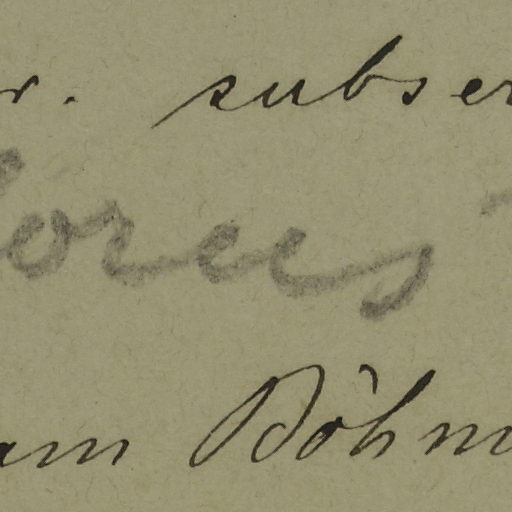 r. subser
lorees
am Böhm